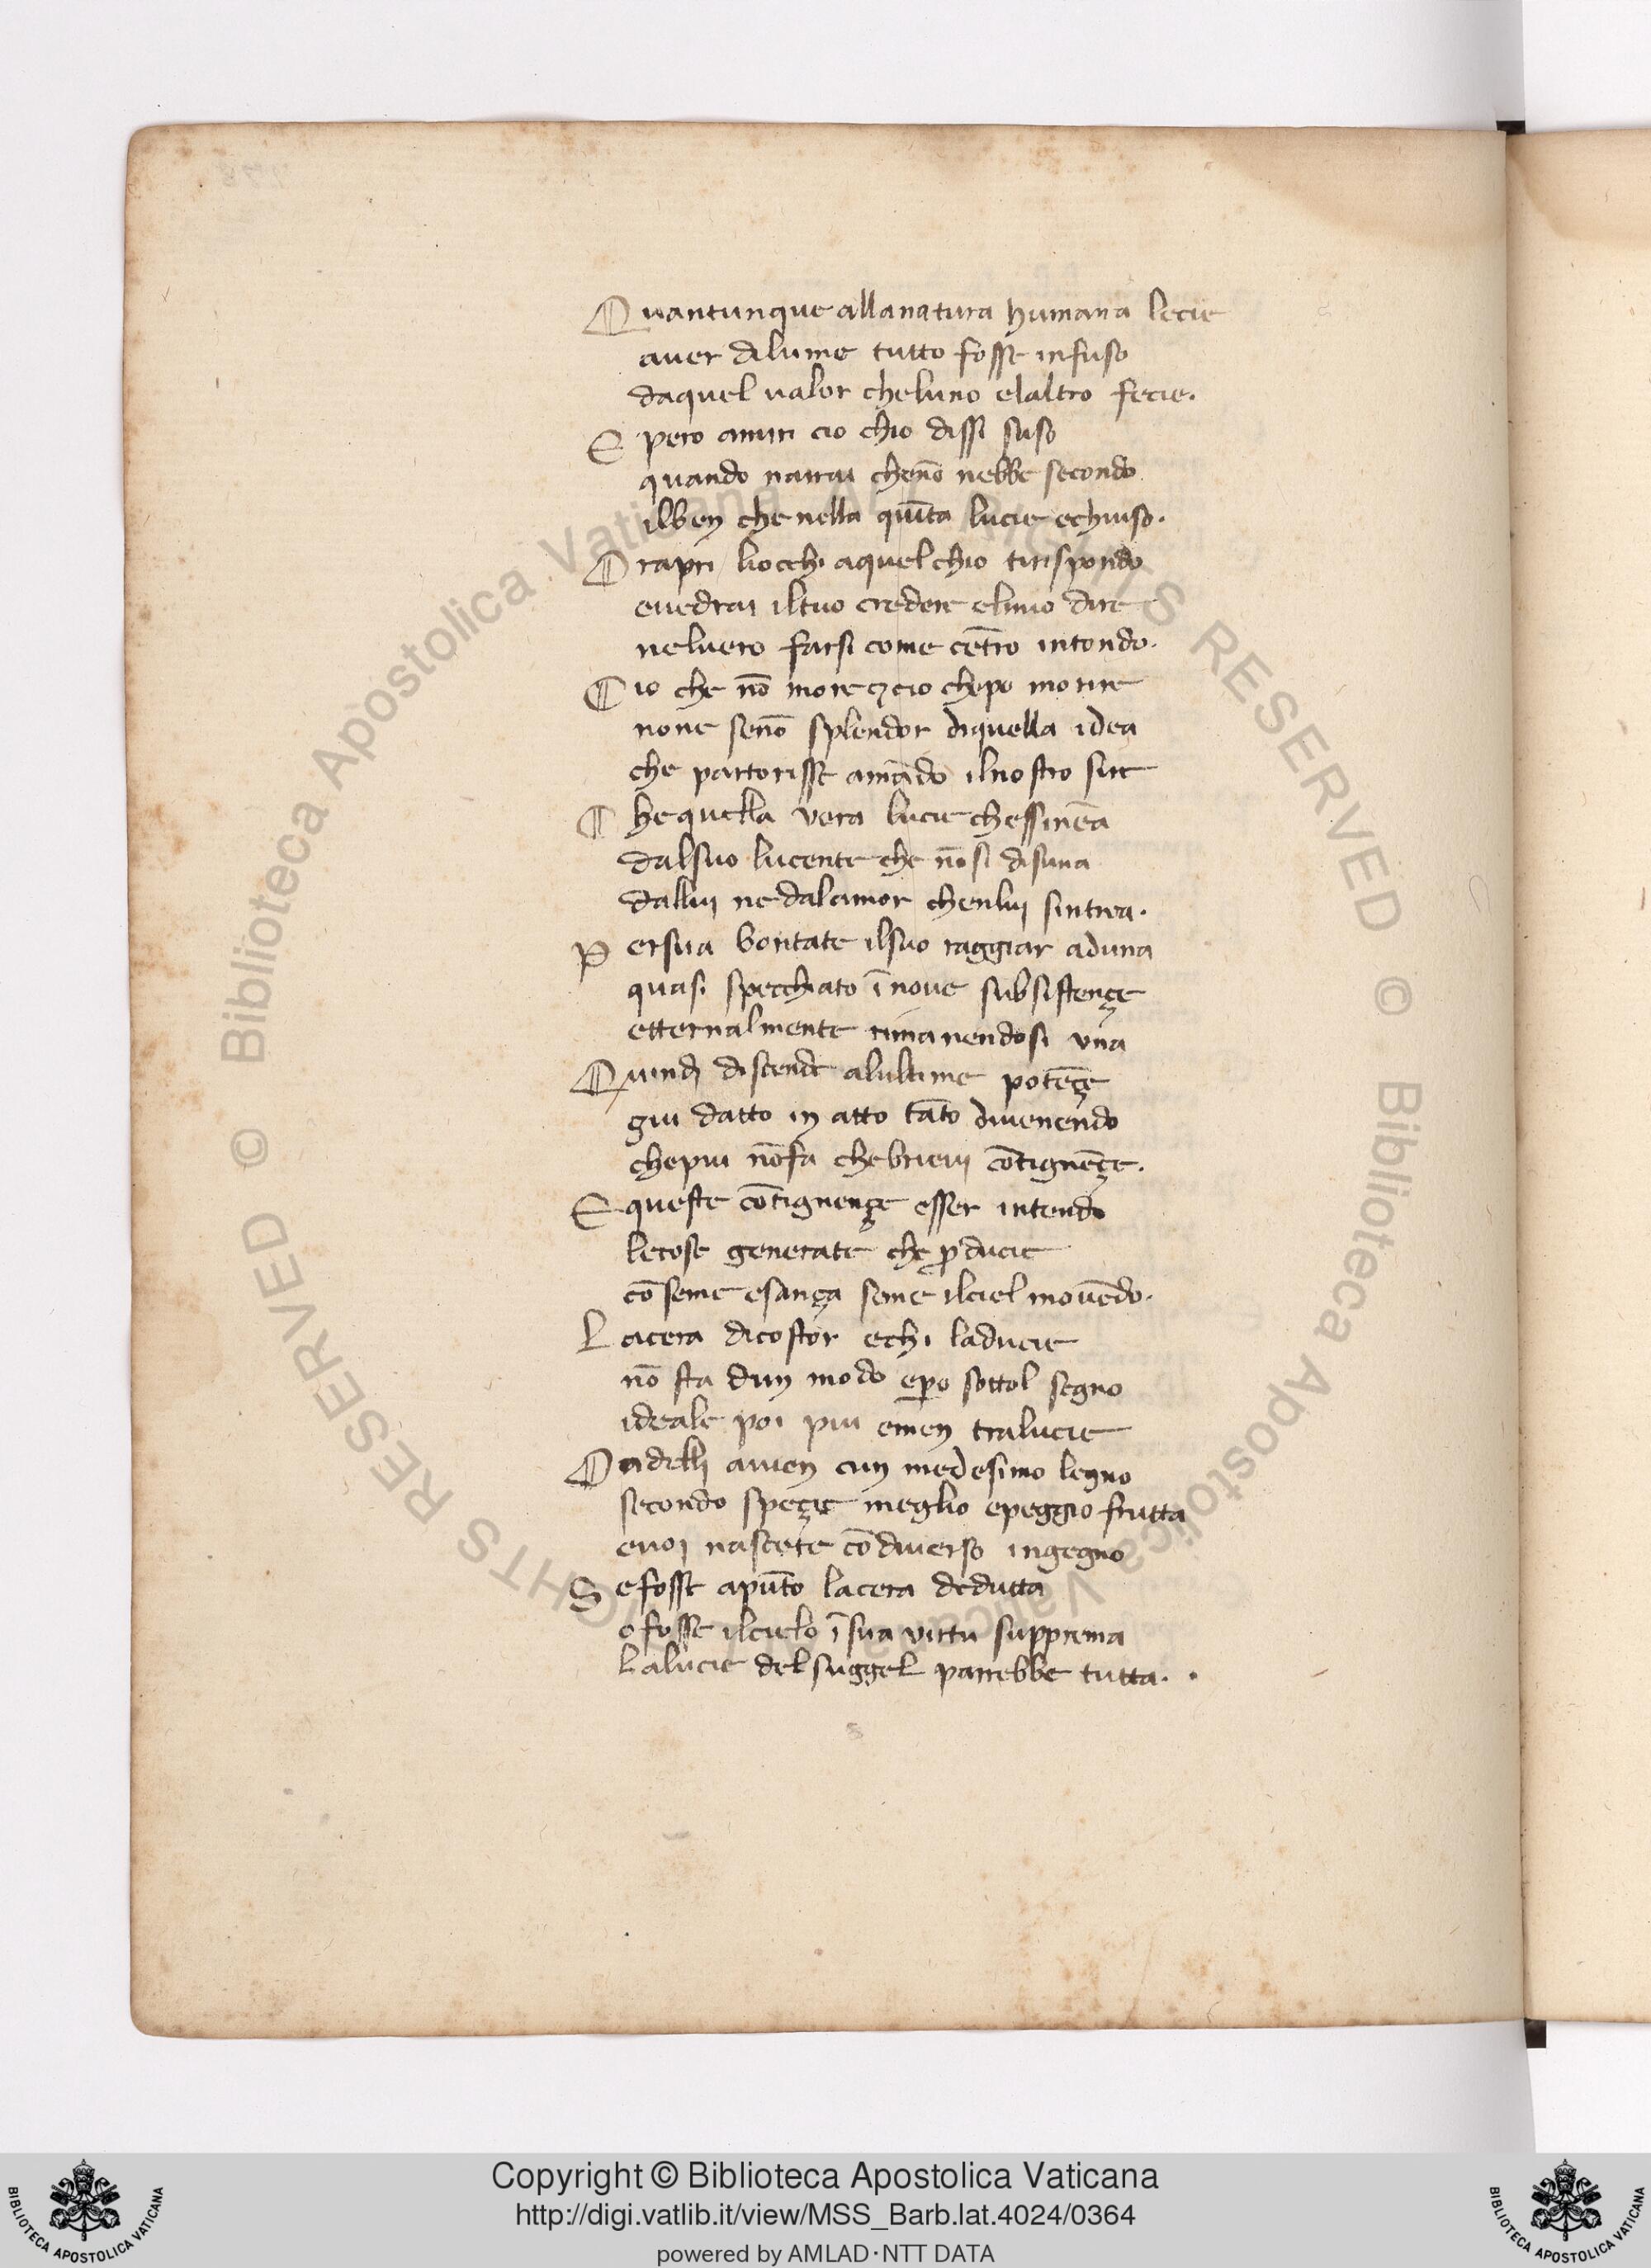 Quantunque allanatura humana lecie
auer dilume tutto fosse infuso
daquel ualor cheluno elaltro fecie.
E pero amiri cio chio dissi suso
quando narrai chenō nebbe secondo
ilben chenella quīta lucie echiuso.
Orapri liocchi aquelchio tirispondo
euedrai iltuo credere elmio dire
neluero farsi come cētro intondo.
Cio che nō more 7 cio chepo morire
none senō splendor diquella idea
che partorisse amādo ilnostro sire
Che quella vera lucie chessimēa
dalsuo lucente che nōsi disuna
dallui nedalamor chenlui sintrea.
Persua bontate ilsuo raggiar aduna
quasi specchiato ī noue subsistençe
etternalmente rimanendosi vna
Quindi discende alultime potēçe
giu datto in atto tāto diuenendo
chepiu nōfa chebrieui cōtignēçe.
E queste cōtignençe esser intendo
lecose generate che ꝓducie
cō seme esança seme ilciel mouēdo.
Lacera dicostor echi laducie
nō sta dun modo eꝑo sottol segno
ideale poi piu emen tralucie
Ondelli auien cun medesimo legno
secondo speçie meglio epeggio frutta
euoi nascete cōdiuerso ingegno
Sefosse apūto lacera dedutta
ofosse ilcielo ī sua virtu supprema
Lalucie delsuggel parrebbe tutta.
© Biblioteca Apostolica Vaticana ALL RIGHTS RESERVED
© Biblioteca Apostolica Vaticana ALL RIGHTS RESERVED
Copyright © Biblioteca Apostolica Vaticana
http://digi.vatlib.it/view/MSS_Barb.lat.4024/0364
powered by AMLAD·NTT DATA
BIBLIOTECA APOSTOLICA VATICANA
BIBLIOTECA APOSTOLICA VATICANA